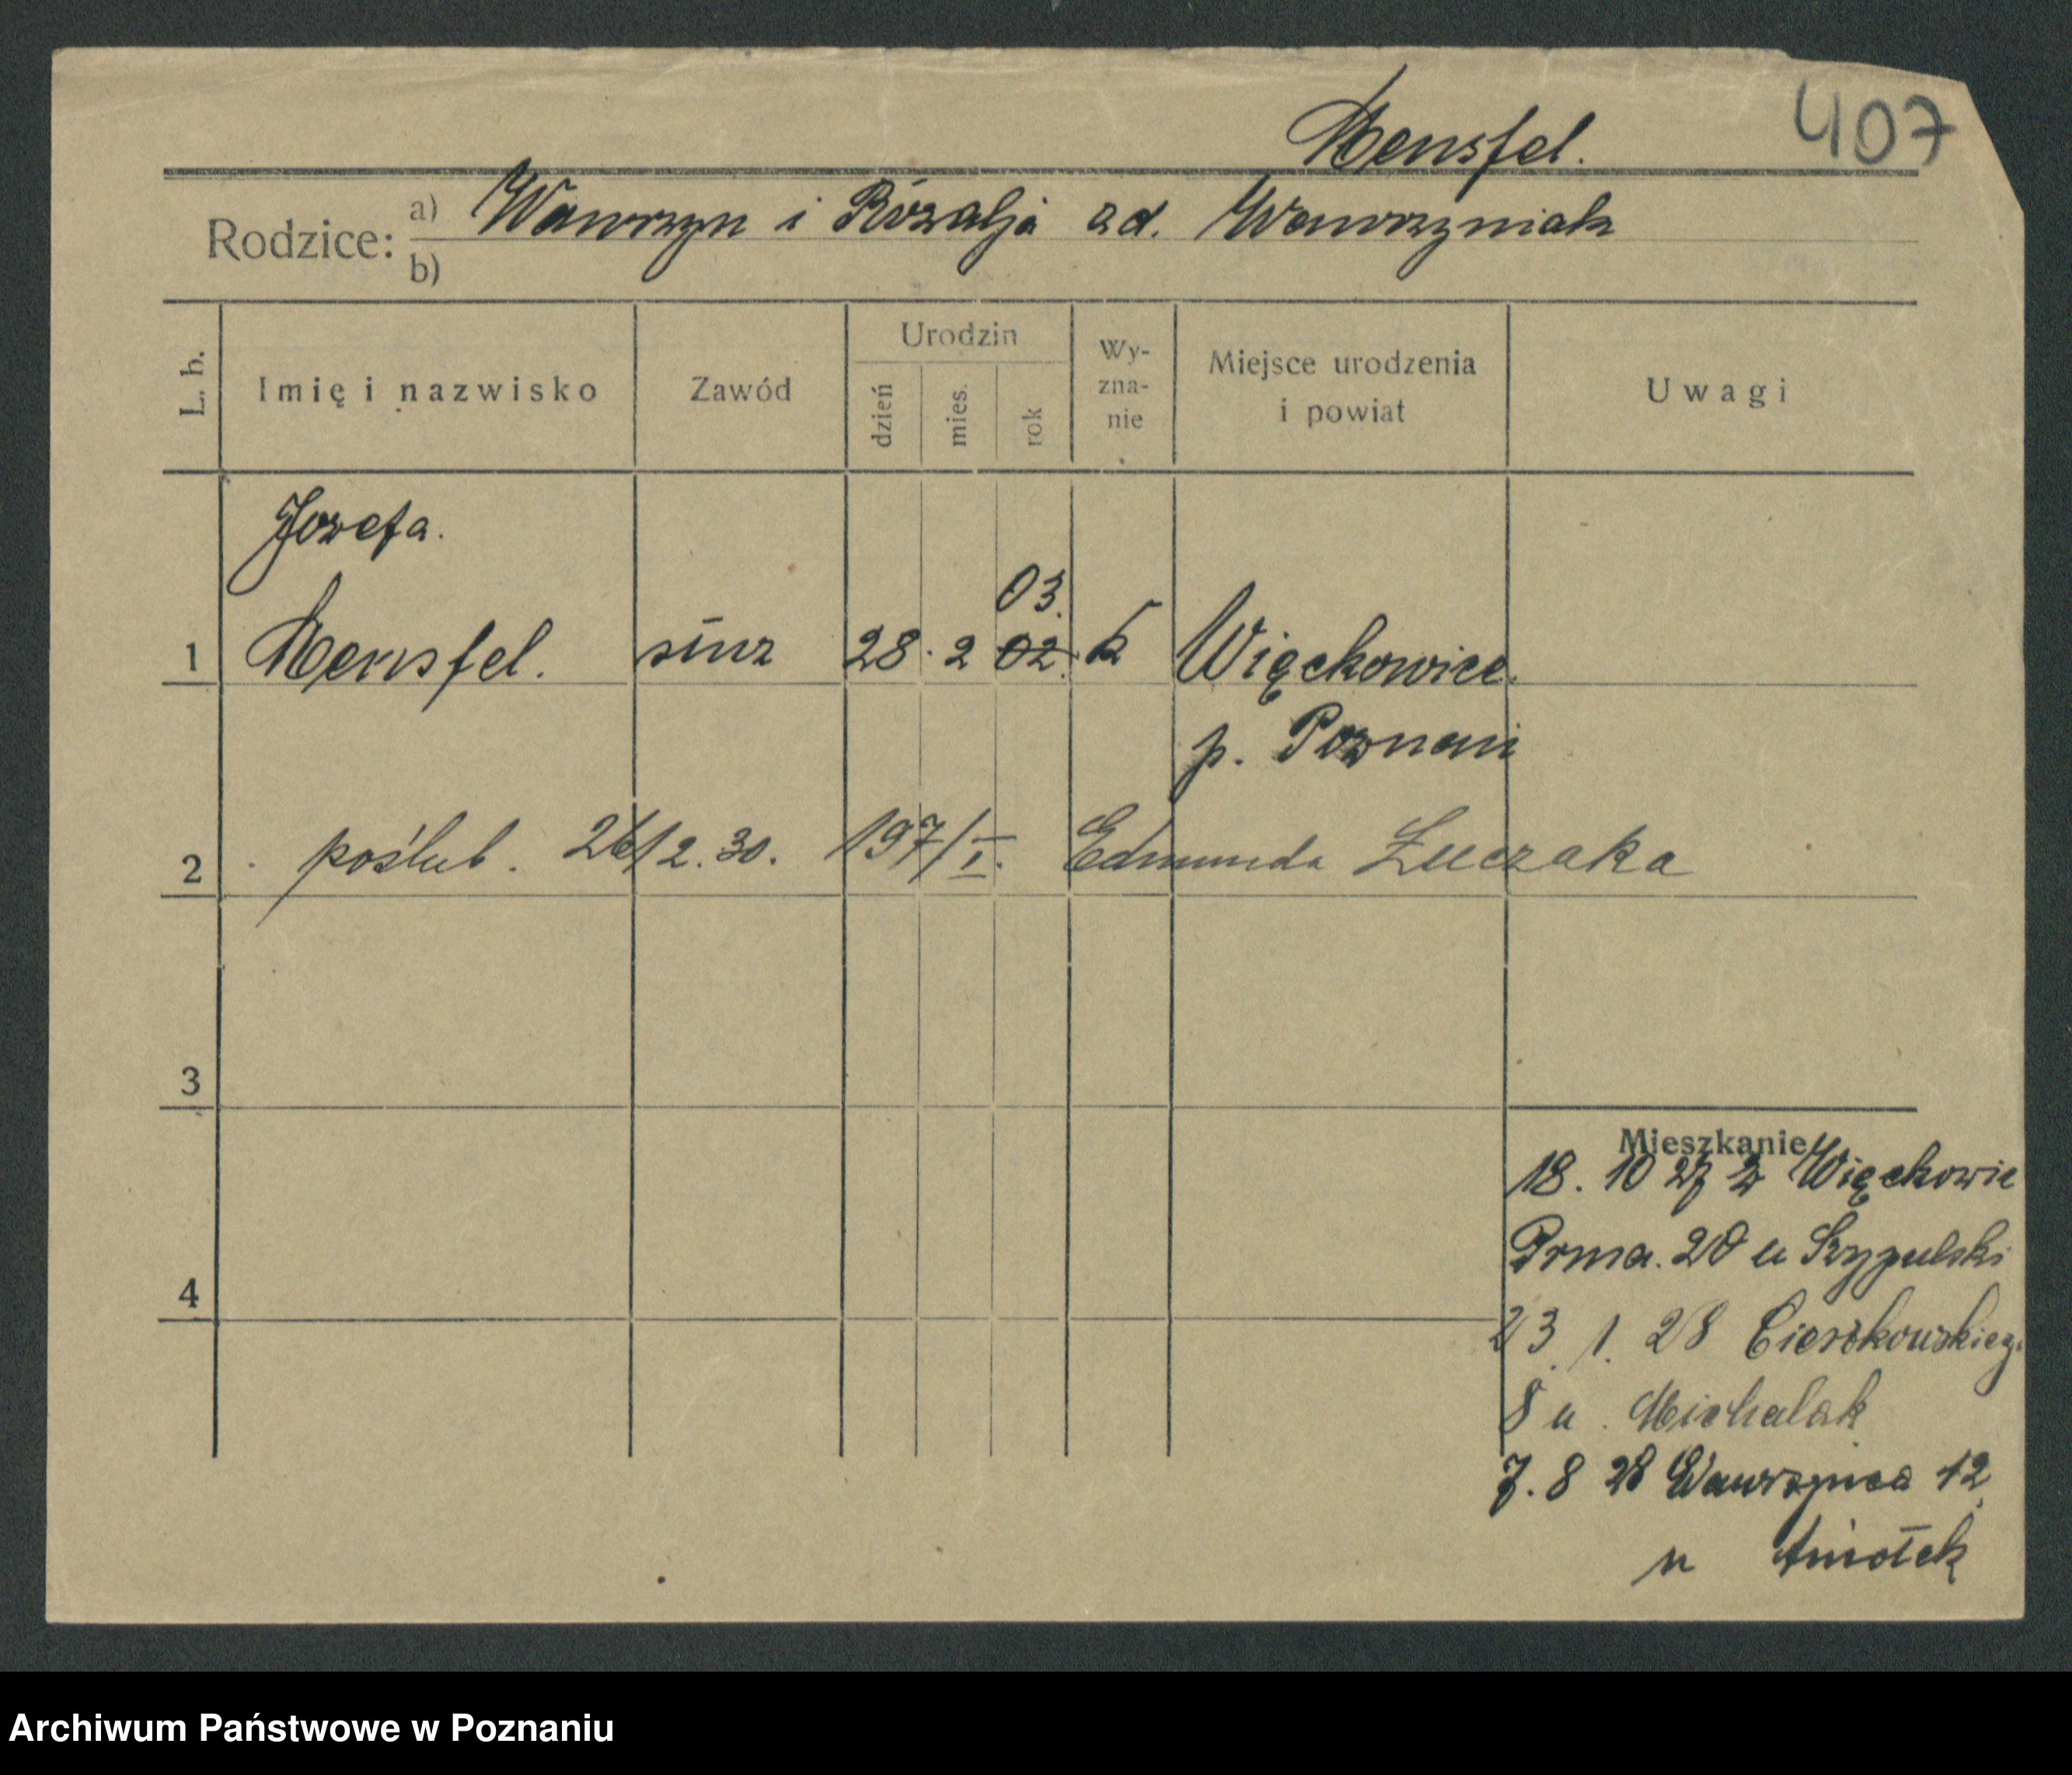 407
Mensfel.
Rodzice: a) Wawrzyn i Rózalja zd. Wawrzyniak
b)
L. b. Imię i nazwisko Zawód Urodzin dzień mies. rok Wyznanie Miejsce urodzenia i powiat Uwagi
Jozefa.
03.
1 Mensfel. służ 28. 2 02. k Więckowice.
p. Poznań
2 poślub. 26/12.30. 197/I. Edmunda Łuczaka
3
Mieszkanie
18. 10 27 z Więckowic
20 u Szypulski
4
23. 1. 28 Cieszkowskieg.
8 u. Michalak
7. 8 28 Wawrzyńca 12
u Aniołek
Archiwum Państwowe w Poznaniu